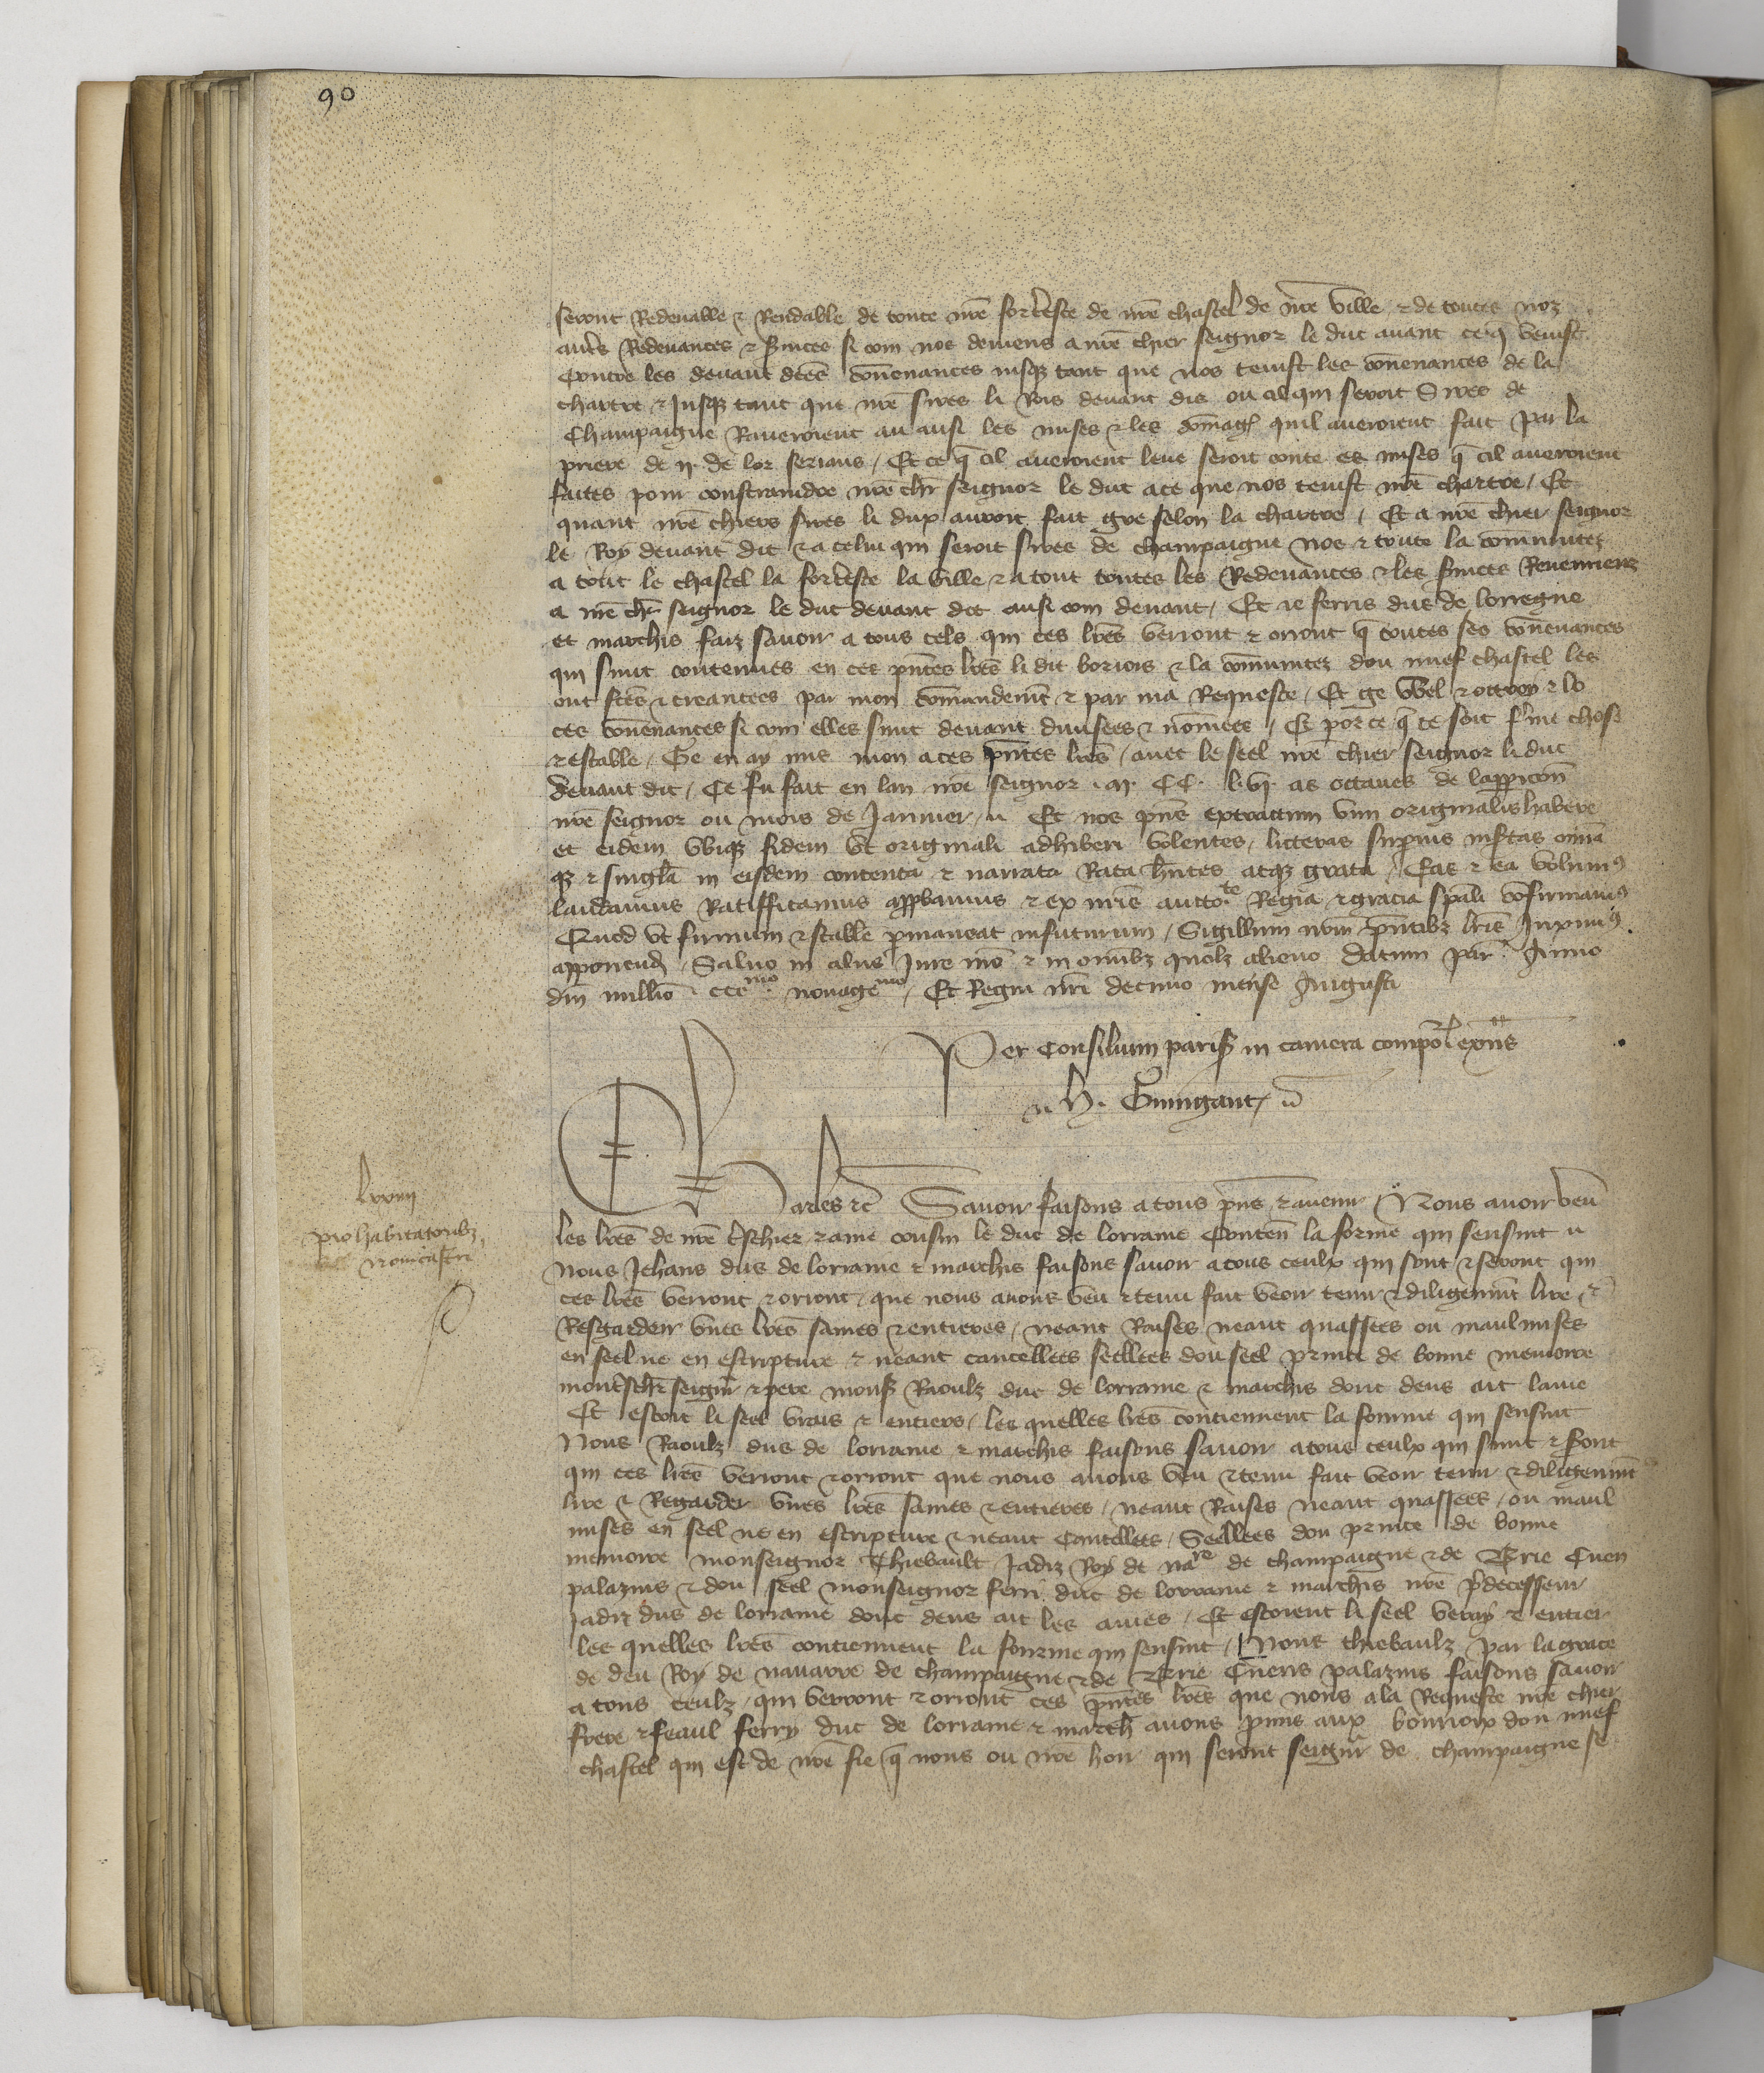 90
seront Redevable & Rendable de toute nre fort'esce de nre chastel de nre ville & de toutes noz
aut's Redevances & s'vices si com nos deviens a nre chier seignor le duc avant ce q venist
contre les devant dites convenances iusqz tant que nos tenist les convenances de la
chartre & Jusqz tant que nre sires li Rois devant dis ou cil qui seroit Sires de
Champaigne Raveroient au ausi les mises & les domag' quil averoient fait par la
prieve de ii de lor serians / Et ce q cil averoient leve seroit conte es mises q cil averoient
faites pour constraindre nre chr seignor le duc a ce que nos tenist nre chartre / Et
quant nre chiers sires li dux auroit fait gre selon la chartre / Et a nre chier seignor
le Roy devant dit & a celui qui seroit sires de champaigne nos & toute la communitez
a tout le chastel la fort'esce la ville & a tout toutes les Redevances & les s'vices Revenrienz
a nre chr seignor le duc devant dit ausi com devant / Et ie ferris dux de lorregne
et marchis faiz savoir a tous cels qui ces lres verront & oriont q toutes ses convenances
qui sunt contenues en ces pntes lres li dit boriois & la communitez dou nuef chastel les
ont ftes & creantees par mon commandemt & par ma Requeste / Et ge Wel & ottroy & lo
ces convenances si com elles sunt devant divisees & nomees / Et por ce q ce soit f'me chose
& estable / Ge en ay mis mon a ces pntes lres / avec le seel nre chier seignor li duc
devant dit / Ce fu fait en lan nre seignor . M. CC. l. vi. as octaves de lapparicon
nre seignor ou mois de Janvier / Et nos pns extractum vim originalis habere
et eidem ubiqz fidem ut originali adhiberi volentes / litteras sup'ius insertas omia
qz & singla in eisdem contenta & narrata Rata hntes atqz grata / Eas & ea volum9
laudamus Ratifficamus app'bamus & ex nris aucto.te Regia & gracia spali confirmam9
Quod ut firmum & stabile p'maneat in futurum / Sigillum nrm pntibz lris duxim9
apponend / Salvo in aliis Jure nro & in omibz quolz alieno Datum par' Anno
dni millio ccc.mo nonage.mo / Et Regni nri decimo mense Augusti
Per consilium paris in camera compor exns
H. Guingant
Charles &c Savoir faisons a tous pns & avenir / Nous avoir veu
les lres de nre t'schier & ame cousin le duc de lorraine Conten la forme qui sensuit
Nous Jehans dus de lorraine & marchis faisons savoir a tous ceulx qui sont & seront qui
ces lres verront & oriont / que nous avons veu & tenu fait veoir tenir & diligemnt lire &
Resgarder unes lres saines & entieres / neant Raises neant quassees ou maul mises
en seel ne en escripture & neant cancellees seellees dou seel prince de bonne memoire
mont'schr seignr & pere mons Raoulz duc de lorraine & marchis dont deus ait lame
Et estoit li seel vrais & entiers / les quelles lres contiennent la forme qui sensuit
Nous Raoulz dus de lorraine & marchis faisons savoir a tous ceulx qui sunt & s'ont
qui ces lres verront & oriont que nous avons veu & tenu fait veoir tenir & diligemnt
lire & Regarder unes lres saines & entieres / neant Raises neant quassees / ou maul
mises en seel ne en escripture & neant Cancellees / Seellees dou prince de bonne
memoire monseignor Thiebault Jadiz Roy de nare de champaigne & de Brie Cuen
palazins & dou seel monseignor ferri duc de lorraine & marchis nre p'decesseur
Jadiz dus de lorraine dont deus ait les ames / Et estoient li seel vetay & entier
les quelles lres contiennent la fourme qui sensuit / Nous thiebaulz par la grace
de deu Roy de navarre de champaigne & de Brie Cuens palazins faisons savoir
a tous ceulz / qui verront & oriont ces pntes lres que nous a la Requeste nre chier
frere & feaul ferry duc de lorraine & march avons p'mis aux borriorx dou nuef
chastel qui est de nre fie q nous ou nre hoir qui seront seignr de champaigne se
lxxiiii
pro habitatoribz
novicastri